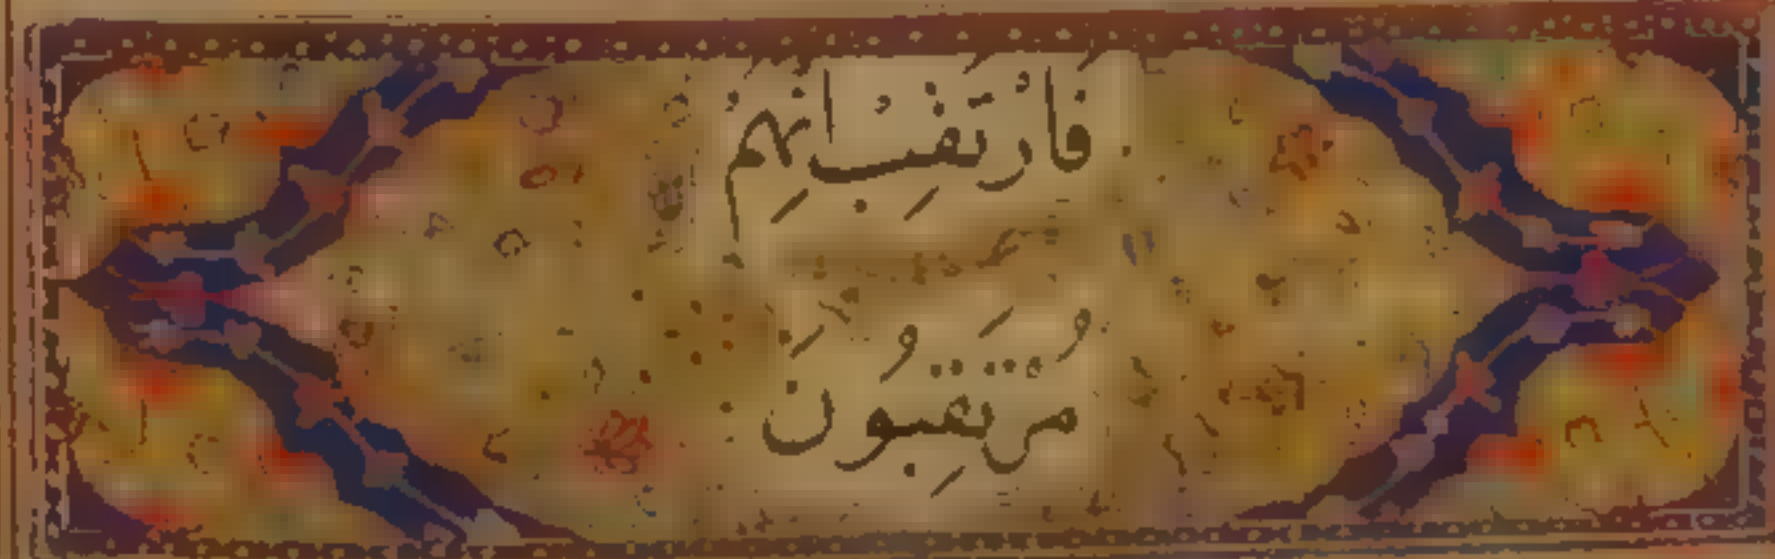 فَارْتَقِبْ اِنَّهُمْ
مُرْتَقِبُونَ